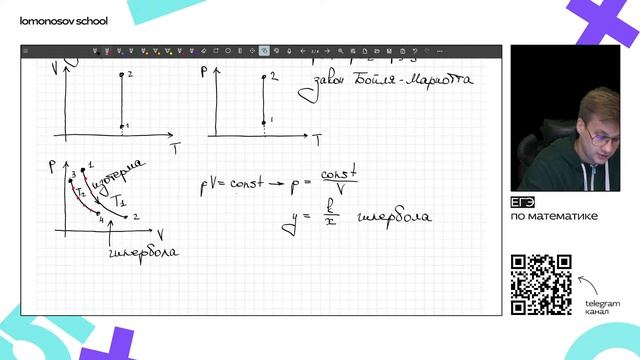 lomonosov school
2/4
V
2
1
T
P
2
1
T
закон Бойля-Мариотта
P
3
1
изотерма
T2
T1
4
2
V
гипербола
pV = const → p = const/V
y = k/x гипербола
ЕГЭ
по математике
telegram
канал